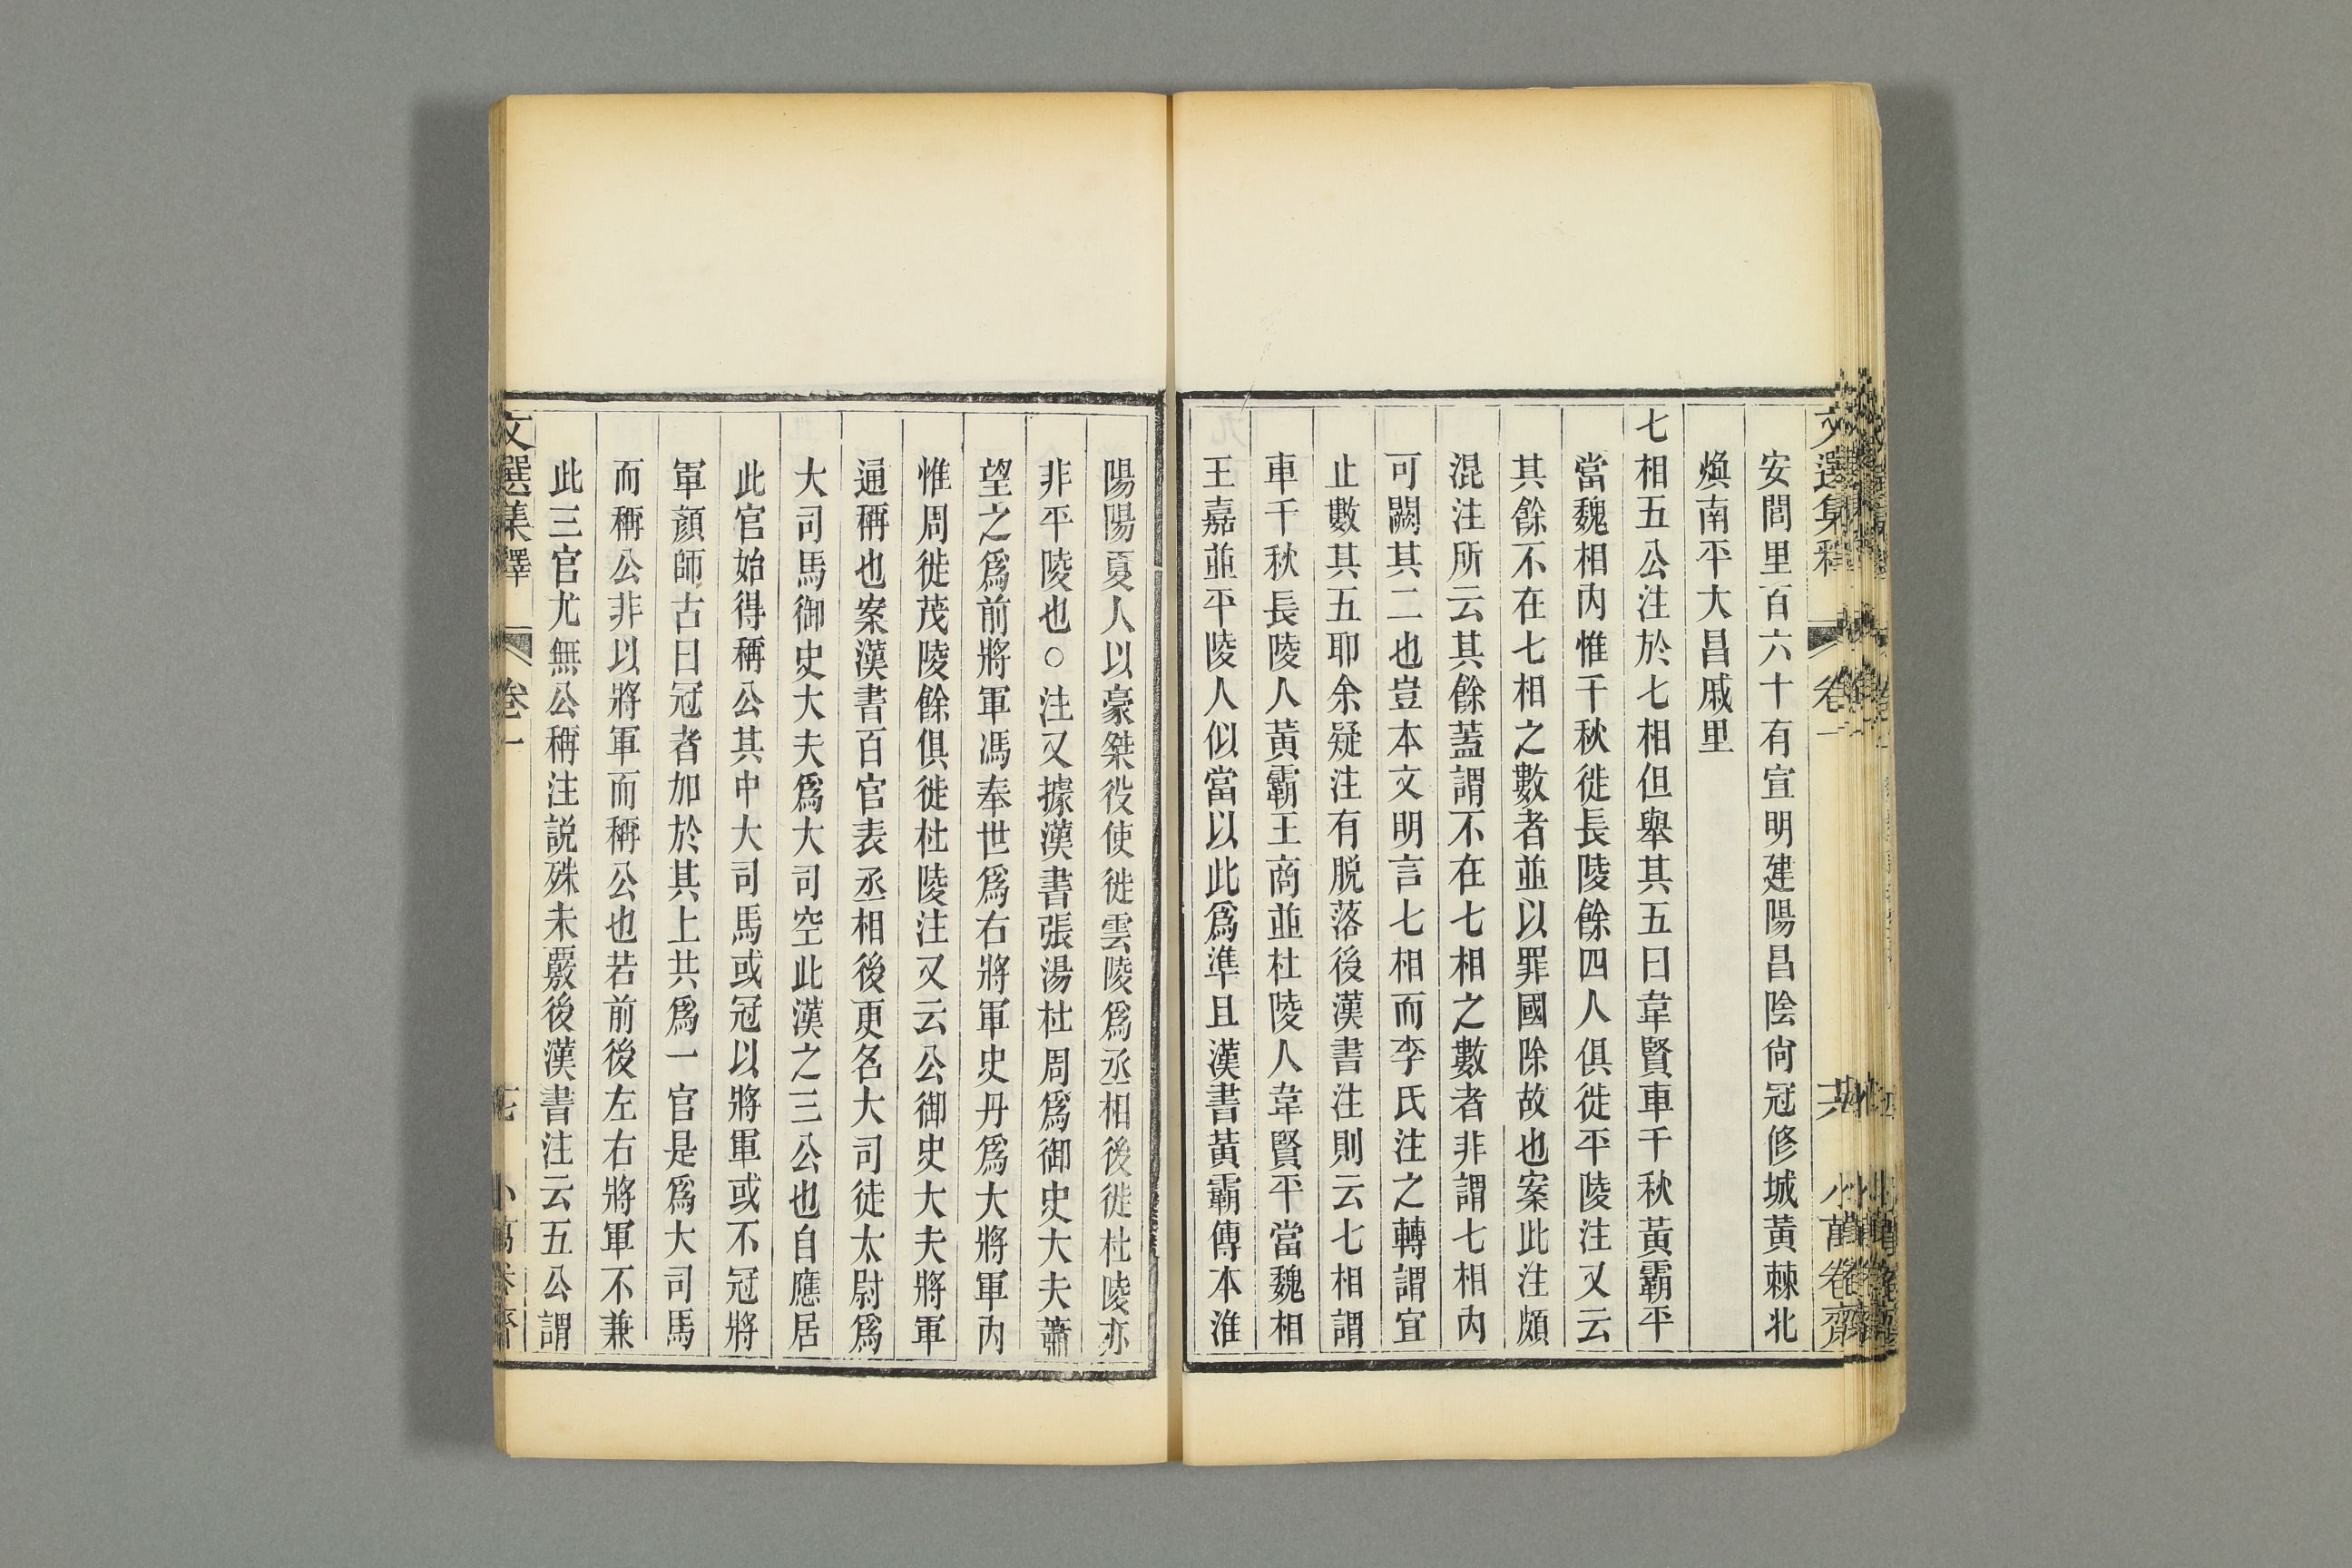 安閭里百六十有宣明建陽昌陰尙冠修城黃棘北
煥南平大昌戚里
七相五公注於七相但舉其五曰韋賢車千秋黃霸平
當魏相內惟千秋徙長陵餘四人俱徙平陵注又云
其餘不在七相之數者並以罪國除故也案此注頗
混注所云其餘蓋謂不在七相之數者非謂七相內
可闕其二也豈本文明言七相而李氏注之轉謂宜
止數其五耶余疑注有脫落後漢書注則云七相謂
車千秋長陵人黃霸王商並杜陵人韋賢平當魏相
王嘉並平陵人似當以此爲準且漢書黃霸傳本淮
陽陽夏人以豪桀役使徙雲陵爲丞相後徙杜陵亦
非平陵也○注又據漢書張湯杜周爲御史大夫蕭
望之爲前將軍馮奉世爲右將軍史丹爲大將軍內
惟周徙茂陵餘俱徙杜陵注又云公御史大夫將軍
通稱也案漢書百官表丞相後更名大司徒太尉爲
大司馬御史大夫爲大司空此漢之三公也自應居
此官始得稱公其中大司馬或冠以將軍或不冠將
軍顏師古曰冠者加於其上共爲一官是爲大司馬
而稱公非以將軍而稱公也若前後左右將軍不兼
此三官尤無公稱注説殊未覈後漢書注云五公謂
文選集釋 卷一 七 小萬卷齋